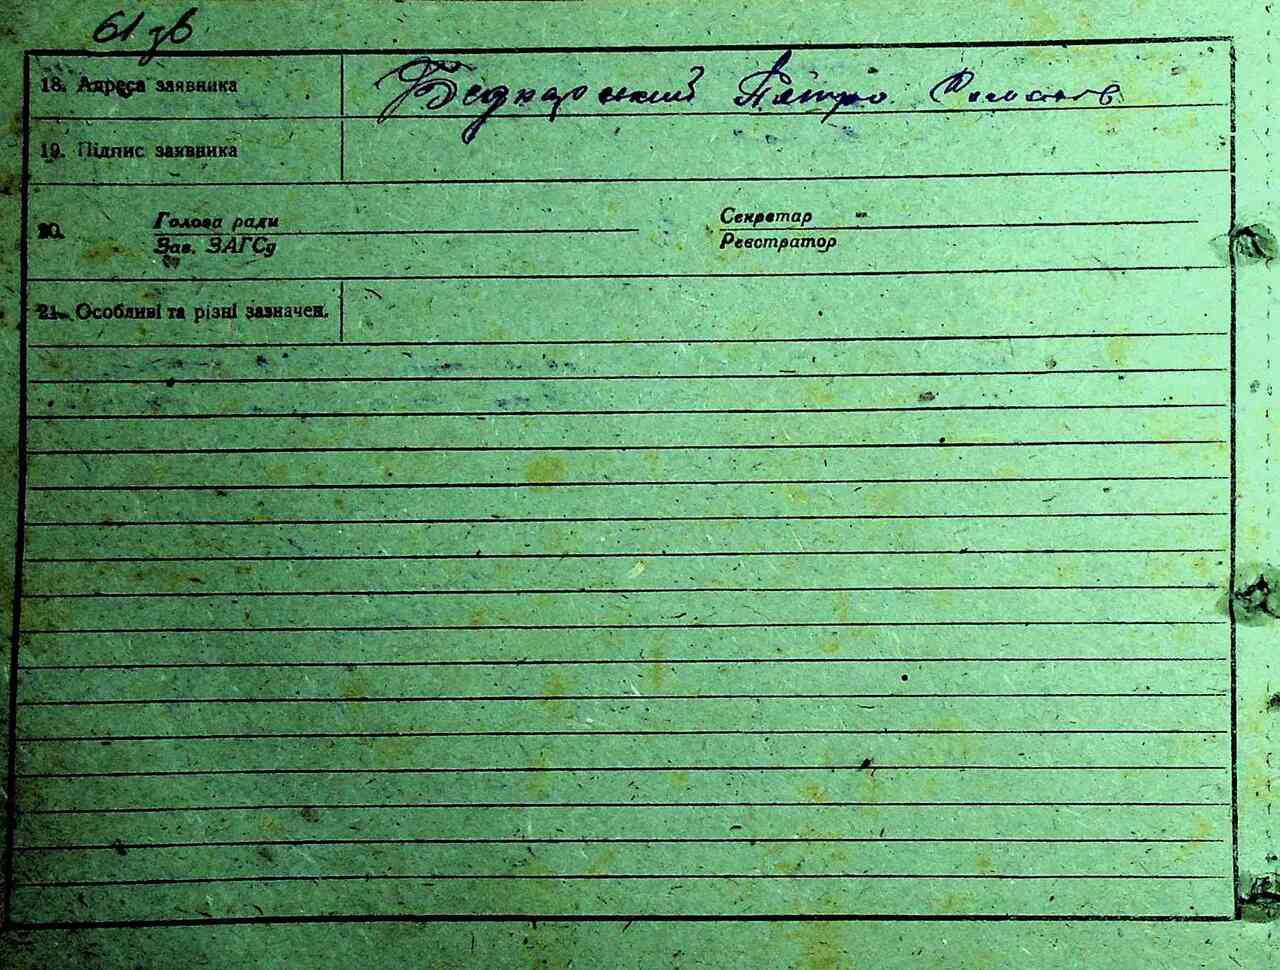 61 зв
18. Адреса заявника Беднарский Петро
19. Підпис заявника
20. Голова ради Секретар
Зав. ЗАГСу Реєстратор
21. Особливі та різні зазначен.